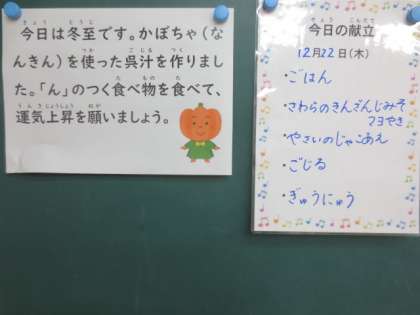 今日は冬至です。かぼちゃ(な
んきん)を使った呉汁を作りまし
た。「ん」のつく食べ物を食べて、
運気上昇を願いましょう。
今日の献立
12月22日(木)
・ごはん
・さわらのきんざんじみそ
マヨやき
・やさいのじゃこあえ
・ごじる
・ぎゅうにゅう